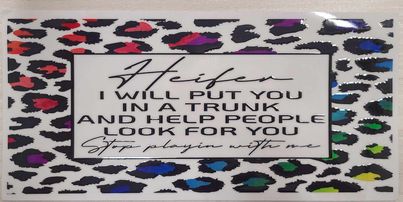 Heifer
I WILL PUT YOU
IN A TRUNK
AND HELP PEOPLE
LOOK FOR YOU
Stop playin with me